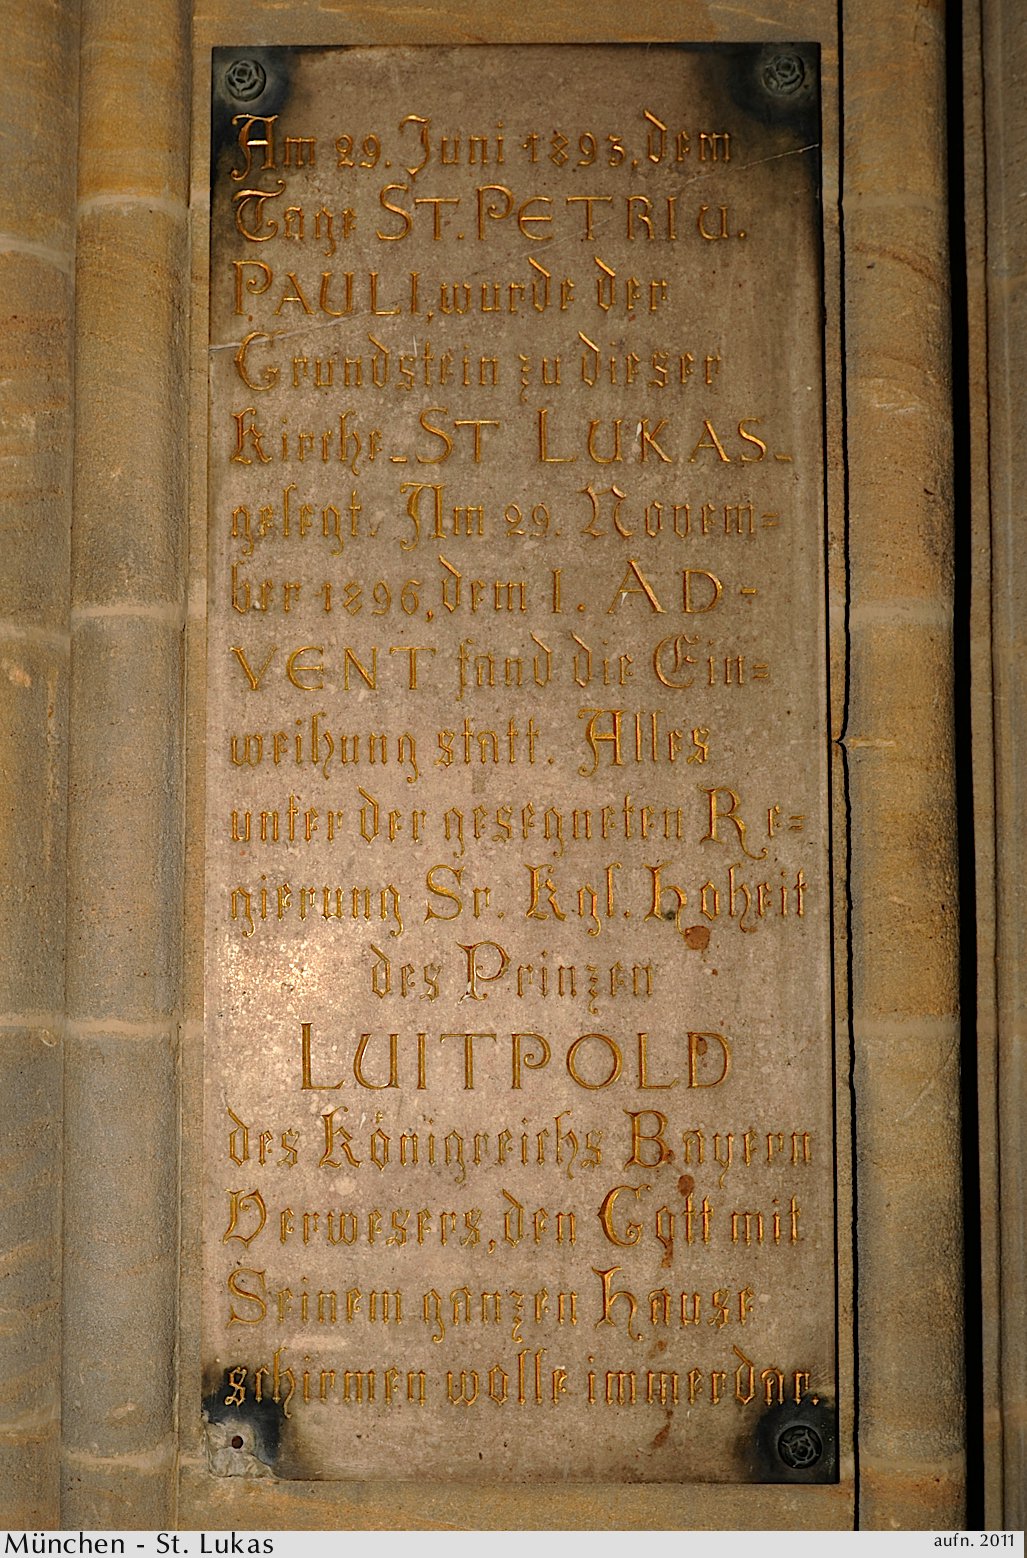 Am 29. Juni 1893, dem
Tage ST. PETRI u.
PAULI, wurde der
Grundstein zu dieser
Kirche - ST LUKAS -
gelegt. Am 29. Novem=
ber 1896, dem I. AD-
VENT fand die Ein=
weihung statt. Alles
unter der gesegneten Re=
gierung Sr. Kgl. Hoheit
des Prinzen
LUITPOLD
des Königreichs Bayern
Verwesers, den Gott mit
Seinem ganzen Hause
schirmen wolle immerdar.
München - St. Lukas
aufn. 2011